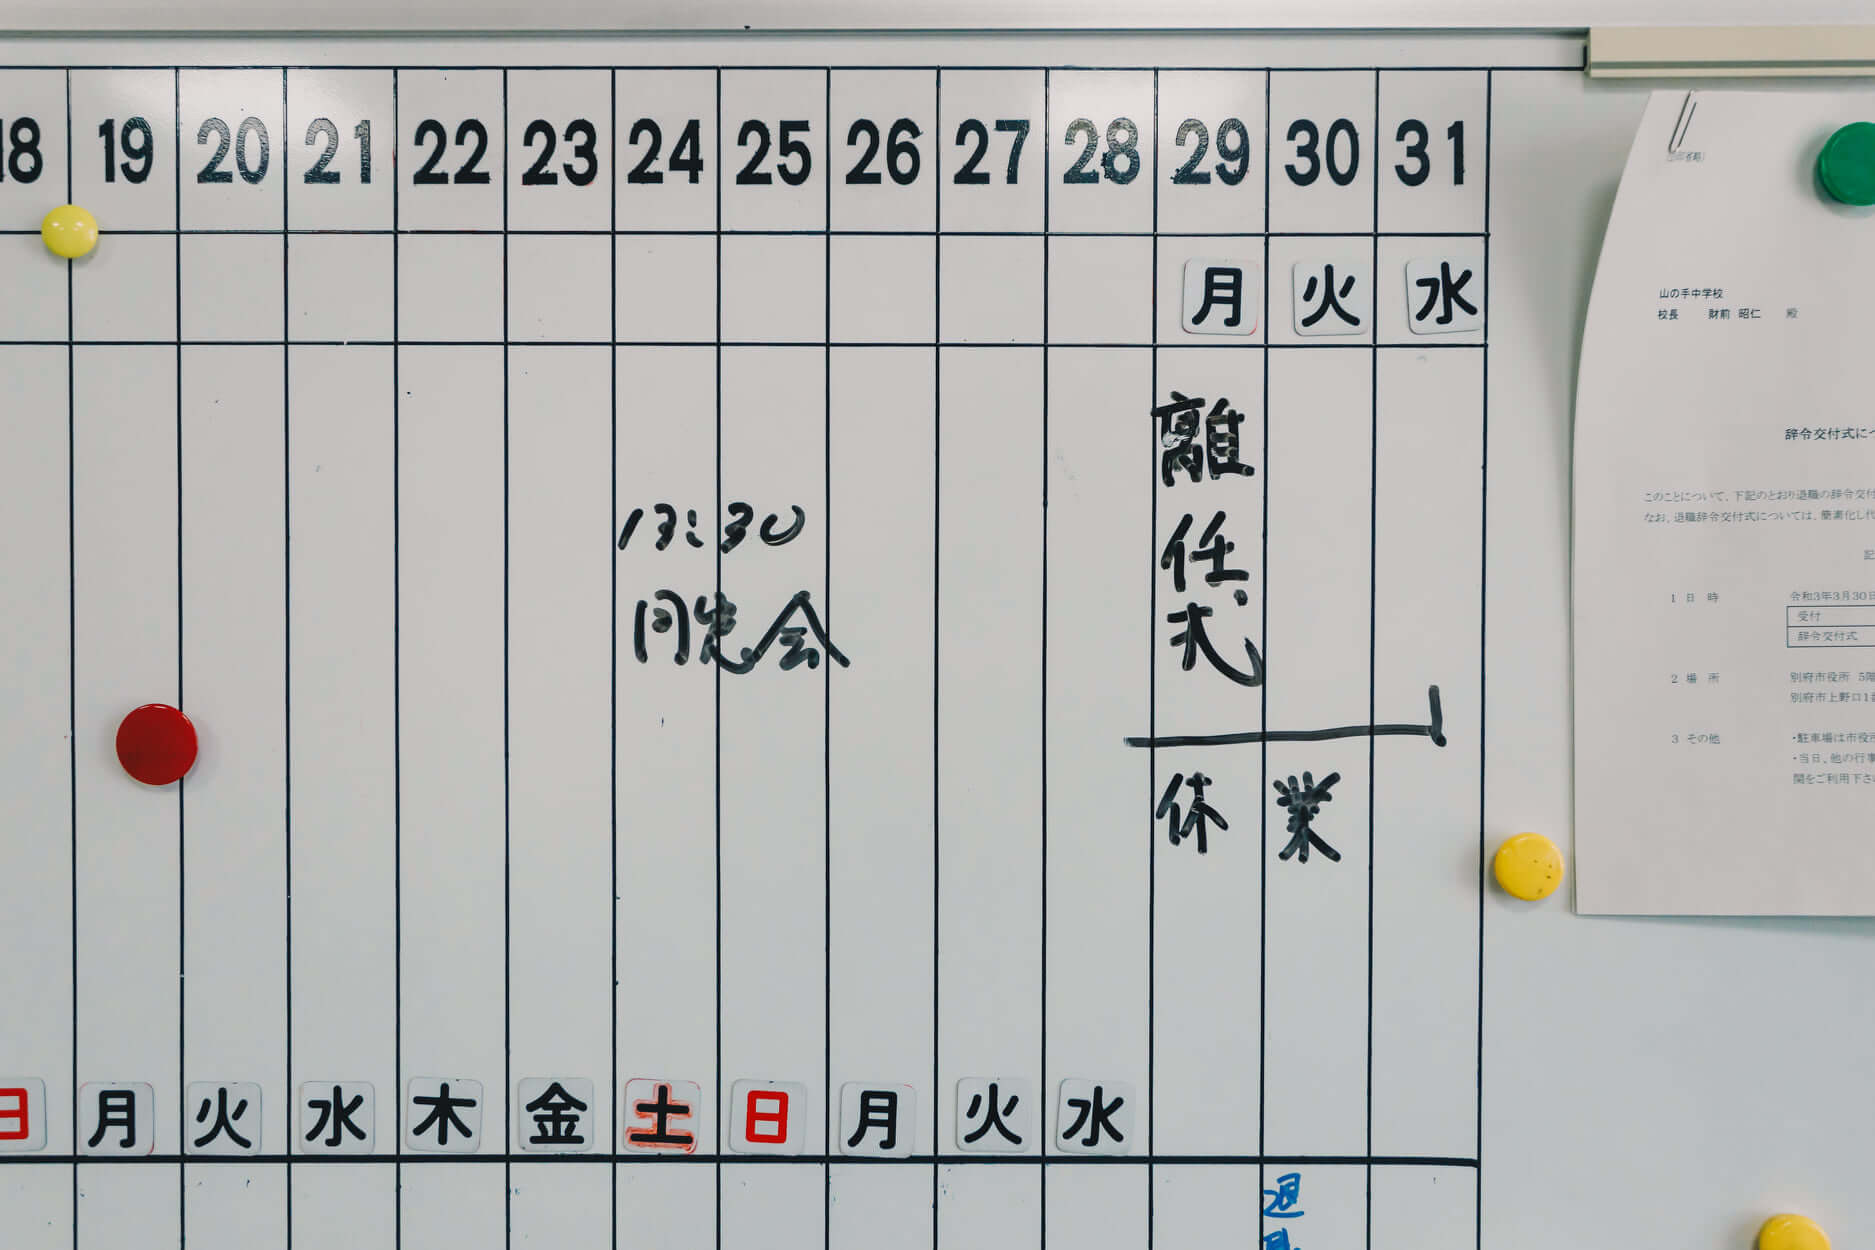 18 19 20 21 22 23 24 25 26 27 28 29 30 31
月 火 水
離任式
13:30
同窓会
休業
日 月 火 水 木 金 土 日 月 火 水
退
山の手中学校
校長 財前 昭仁 殿
辞令交付式に
このことについて、下記のとおり退職の辞令交付
なお、退職辞令交付式については、簡素化し代
記
1 日 時 令和3年3月30日
受付
辞令交付式
2 場 所 別府市役所 5階
別府市上野口1
3 その他 ・駐車場は市役所
・当日、他の行事
関をご利用下さ